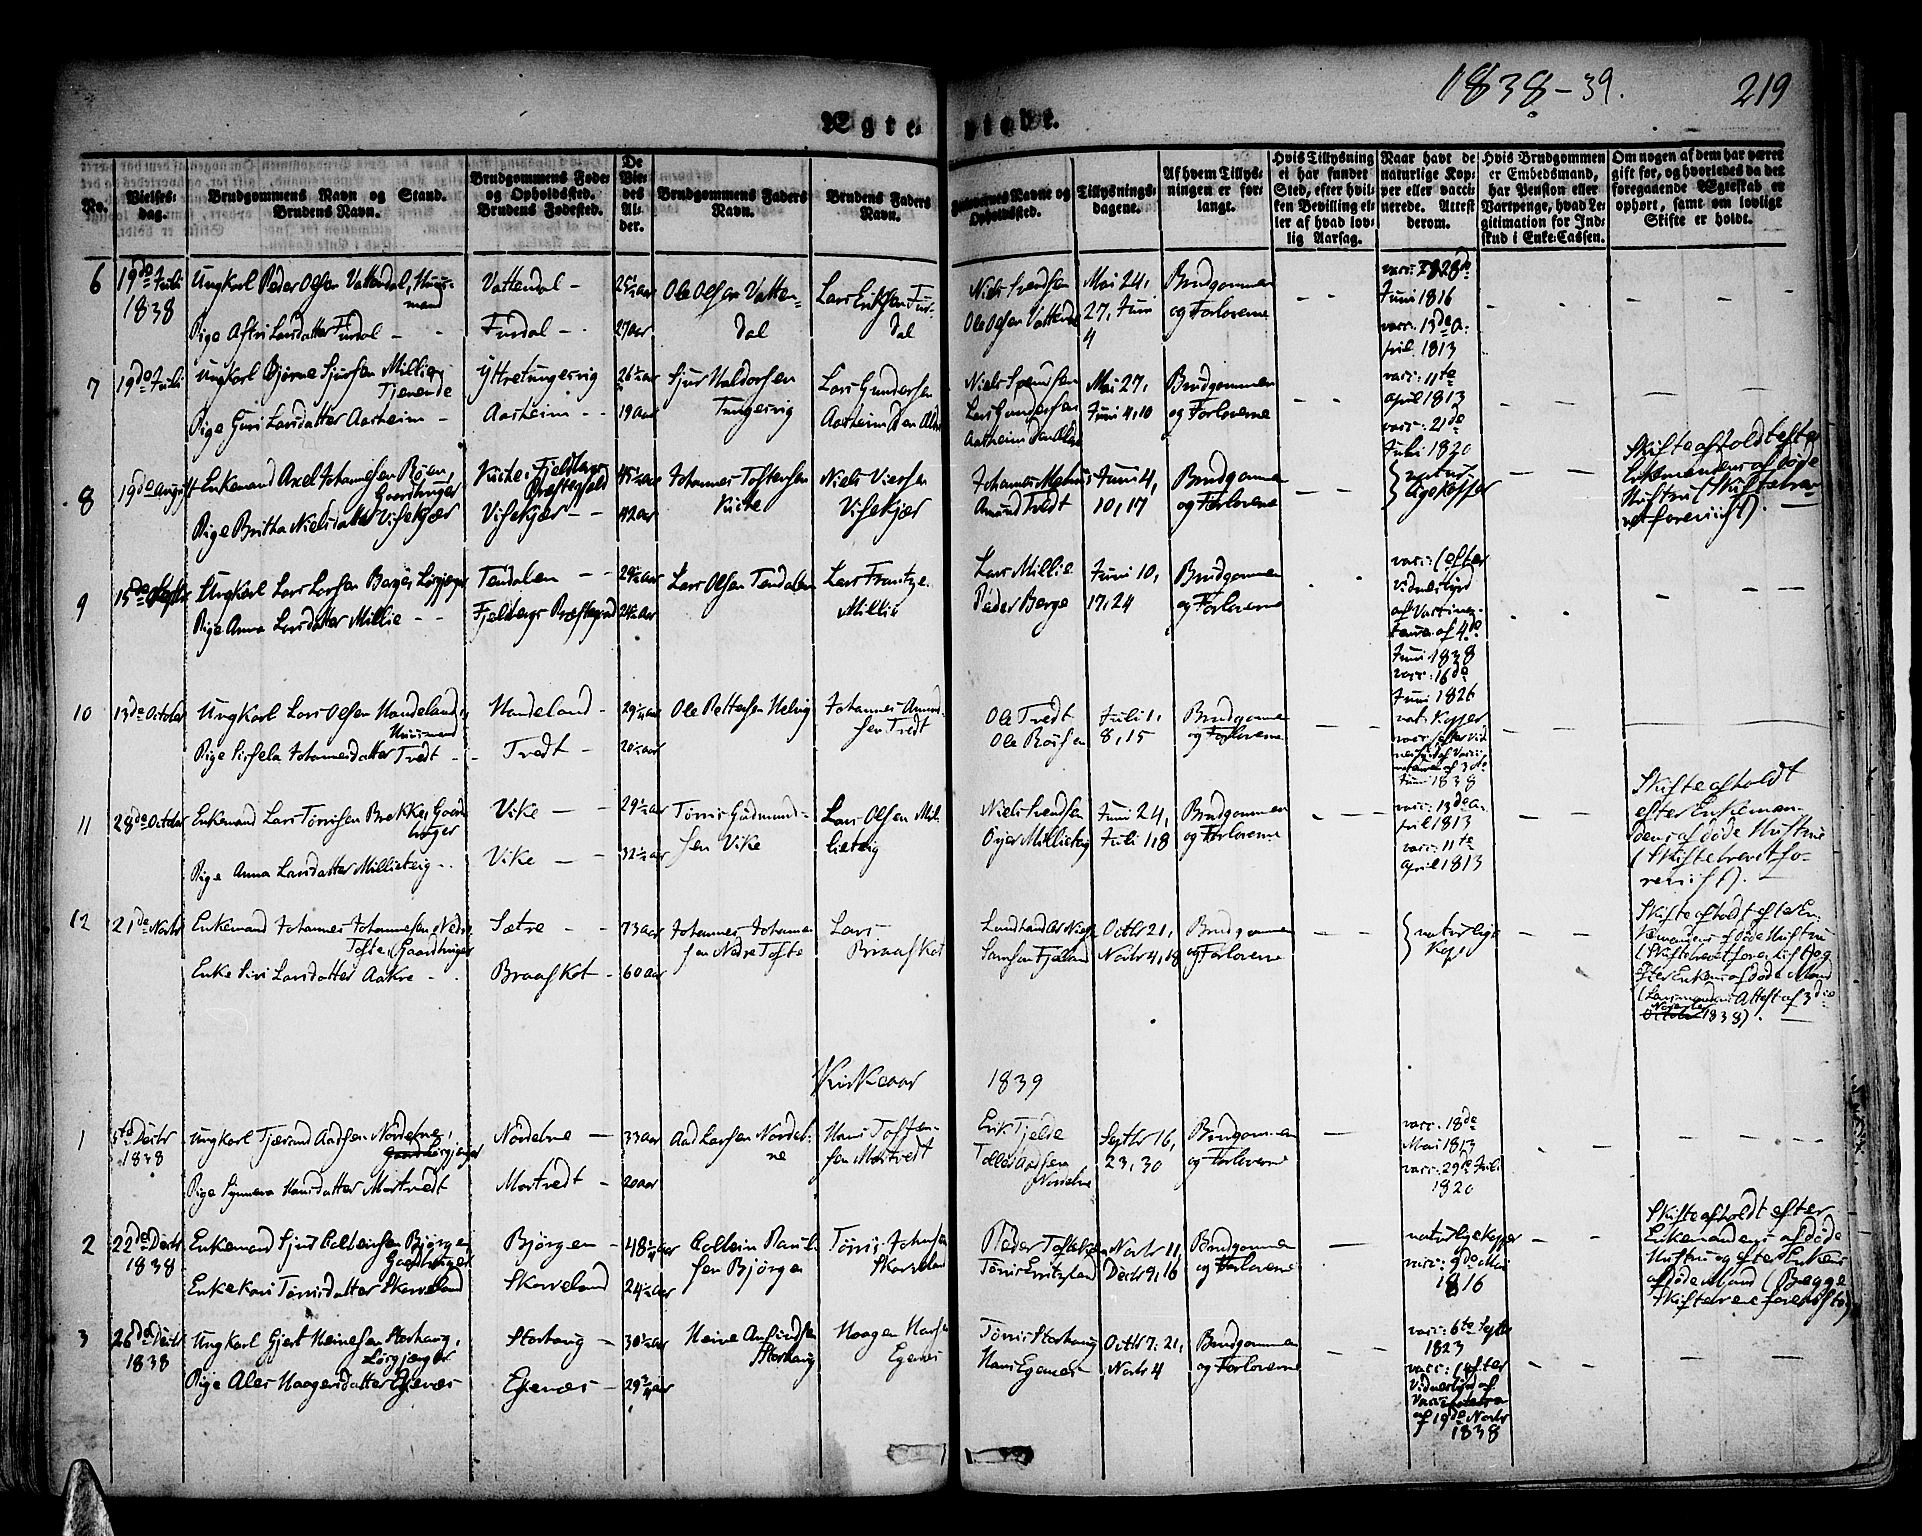 1838-39.
219
Ægteviede.
No.
Vielses-
dag.
Brudgommens Navn og Stand.
Brudens Navn.
Brudgommens Føde-
og Opholdssted.
Brudens Fødested.
De
Vie-
des
Al-
der.
Brudgommens Faders
Navn.
Brudens Faders
Navn.
Forlovernes Navne og
Opholdssted.
Tillysnings-
dagene.
Af hvem Tillys-
ningen er for-
langt.
Hvis Tillysning
ei har fundet
Sted, efter hvil-
ken Bevilling el-
ler af hvad lov-
lig Aarsag.
Naar havt de
naturlige Kop-
per eller vacci-
nerede. Attest
derom.
Hvis Brudgommen
er Embedsmand,
har Pension eller
Vartpenge, hvad Le-
gitimation for Ind-
skud i Enke-Cassen.
Om nogen af dem har været
gift før, og hvorledes da det
foregaaende Ægteskab er
ophørt, samt om lovligt
Skifte er holdt.
6
19de Juli
1838
Ungkarl Peder Olsen Vattendal, Huus-
mand
Pige Astri Larsdatter Fürdal
Vattendal
Fürdal
27 aar
Ole Olsen Vatten-
dal
Lars Eriksen Für-
dal
Niels Svendsen
Ole Olsen Vattendal
Mai 24,
27, Juni
4
Brudgommen
og Forloverne
Juni 1816
vacc. 13de A-
pril 1813
7
19de Juli
Ungkarl Bjørne Sjursen Millie,
Tjenende
Pige Guri Larsdatter Aarheim
Yttretungesvig
Aarheim
26½ aar
19 aar
Sjur Haldorsen
Tungesvig
Lars Gundersen
Aarheim den Ældre
Niels Svendsen
Lars Gundersen
Aarheim den Ældre
Mai 27,
Juni 4, 10
Brudgommen
og Forloverne
vacc. 11te
april 1813
vacc. 21de
Juli 1820
8
19de August
Enkemand Axel Johannesen Bøen,
Gaardbruger
Pige Britha Nielsdatter Visekjær
Præstegjeld
Visekjær
42 aar
Johannes Tostensen
Niels Viersen
Visekjær
Amund Tvedt
Juni 4,
10, 17
Brudgommen
og Forloverne
natur-
lige Kopper
Skifte afholdt efter
Enkemandens afdøde
Hustru (Skiftebre-
vet foreviist).
9
15de Septbr
Ungkarl Lars Larsen Berge,
Pige Anna Larsdatter Millie
Tendalen
Fjelbergs Præstegjeld
Lars Olsen Tendalen
Lars Frantze-
Millie
Lars Millie
Peder Berge
Juni 10,
17, 24
Brudgommen
og Forloverne
vacc. (efter
Vidnesbyrd
af Vaccina-
teuren af 4de
Juni 1838
vacc. 16de
Juni 1826
10
13de October
Ungkarl Lars Olsen Handeland,
Huusmand
Pige Sissela Johannesdatter Tvedt
Handeland
Tvedt
29¼ aar
Ole Pettersen Helvig
Johannes Amund-
sen Tvedt
Ole Tvedt
Ole Roisen
Juli 1,
8, 15
Brudgommen
og Forloverne
nat. Kopper
vacc. (efter Vid-
nesbyrd af Vacci-
nateuren af 30te
Juni 1838
11
28de October
Enkemand Lars Tørrisen Brekke, Gaard-
bruger
Pige Anna Larsdatter Millieteig
Vike
Vike
29½ aar
32½ aar
Tørris Gudmund-
sen Vike
Lars Olsen Mil-
lieteig
Niels Svendsen
Osjer Millieteig
Juni 24,
Juli 1, 8
Brudgommen
og Forloverne
vacc. 13de A-
pril 1813
vacc. 11te
April 1813
Skifte afholdt
efter Enkeman-
dens afdøde Hustru
(Skiftebrevet fo-
reviist).
12
21de Novbr
Enkemand Johannes Johannesen Nedre
Tofte, Gaardbruger
Enke Siri Larsdatter Aakre
Sætre
Braaskot
73 aar
60 aar
Johannes Johanne-
sen Nedre Tofte
Lars
Braaskot
Samsen Fjeland
Octbr 21,
Novbr 4, 18
Brudgommen
og Forloverne
naturlige
Kopper
Skifte afholdt efter En-
kemandens afdøde Hustru
(Skiftebrevet foreviist) og
efter Enkens afdøde Mand
(Lensmandens Attest af 3die
November
October 1838).
Kirkeaar 1839
1
5te Decbr
1838
Ungkarl Tjerand Aadsen Nordebne,
Pige Synneva Hansdatter Mortvedt
Nordebne
Mortvedt
33 aar
20 aar
Aad Larsen Nordeb-
ne
Hans Tosten-
sen Mortvedt
Erik Tjelde
Tollef Aadsen
Nordebne
Septbr 16,
23, 30
Brudgommen
og Forloverne
vacc. 18de
Mai 1813
vacc. 29de Juli
1820
2
22de Decbr
1838
Enkemand Sjur Colbeinsen Bjørgen
Gaardbruger
Enke Kari Tørrisdatter Skaveland
Bjørgen
Skaveland
48¼ aar
24½ aar
Colbein Paul-
sen Bjørgen
Tørris Johnsen
Skaveland
Peder Tofte
Novbr 11,
Decbr 9, 16
Brudgommen
og Forloverne
naturlige Kopper
vacc. 9de Mai
1816
Skifte afholdt efter
Enkemandens afdøde
Hustru og efter Enkens
afdøde Mand (Begge
Skiftebrevene foreviiste)
3
26de Decbr
1838
Ungkarl Gjert Heinesen Storhaug,
Pige Ales Haagensdatter Egenæs
Storhaug
Egenæs
30½ aar
29¾ aar
Heine Amundsen
Storhaug
Haagen Hansen
Egenæs
Tørris Storhaug
Hans Egenæs
Octbr 7, 21,
Novbr 4
Brudgommen
og Forloverne
vacc. 6te Septbr
1823
vacc. (efter
Vidnesbyrd af
Vaccinateuren
af 19de Novbr
1838